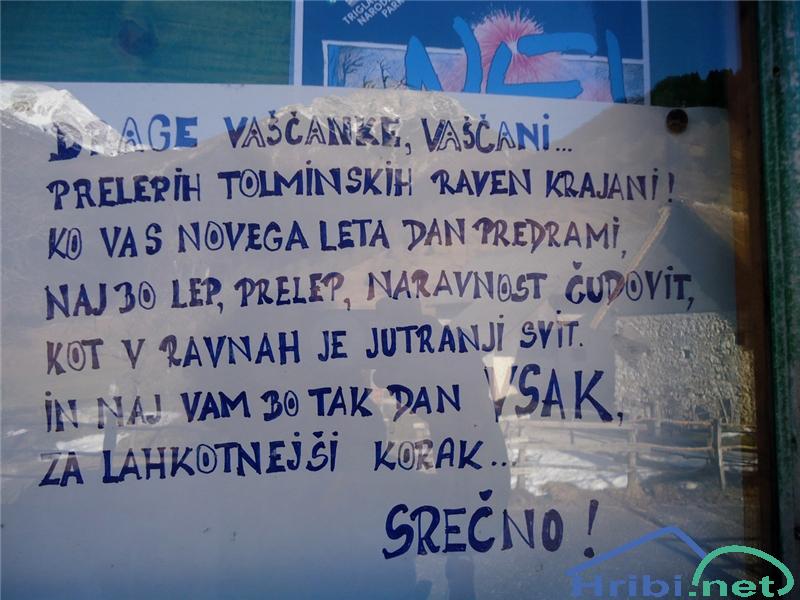 TRIGLA
NAROD
PARK
NE
DRAGE VAŠČANKE, VAŠČANI...
PRELEPIH TOLMINSKIH RAVEN KRAJANI!
KO VAS NOVEGA LETA DAN PREDRAMI,
NAJ BO LEP, PRELEP, NARAVNOST ČUDOVIT,
KOT V RAVNAH JE JUTRANJI SVIT.
IN NAJ VAM BO TAK DAN VSAK,
ZA LAHKOTNEJŠI KORAK...
SREČNO!
Hribi.net